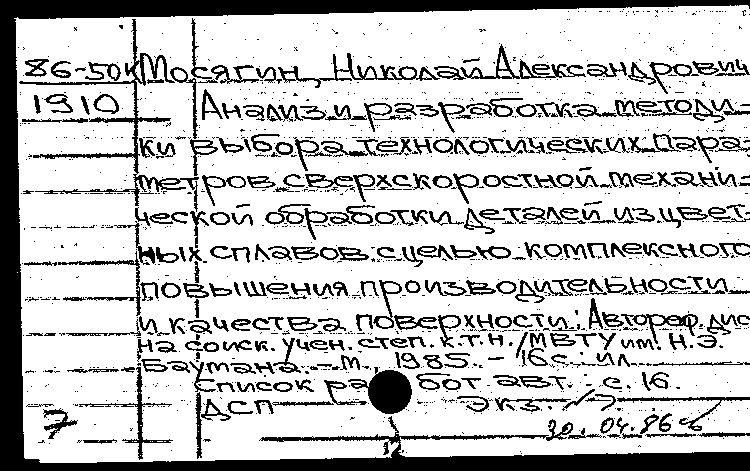 86-50к Мосягин, Николай Александрович
1910 Анализ и разработка методи-
ки выбора технологических пара-
метров сверхскоростной механи-
ческой обработки деталей из цвет-
ных сплавов с целью комплексного
повышения производительности
и качества поверхности: Автореф. дис
на соиск. учен. степ. к.т.н. /МВТУ им. Н.Э.
Баумана. – М., 1985. – 16с.: ил
Список работ авт.: с. 16.
ДСП Экз. №
7 30.04.86
12